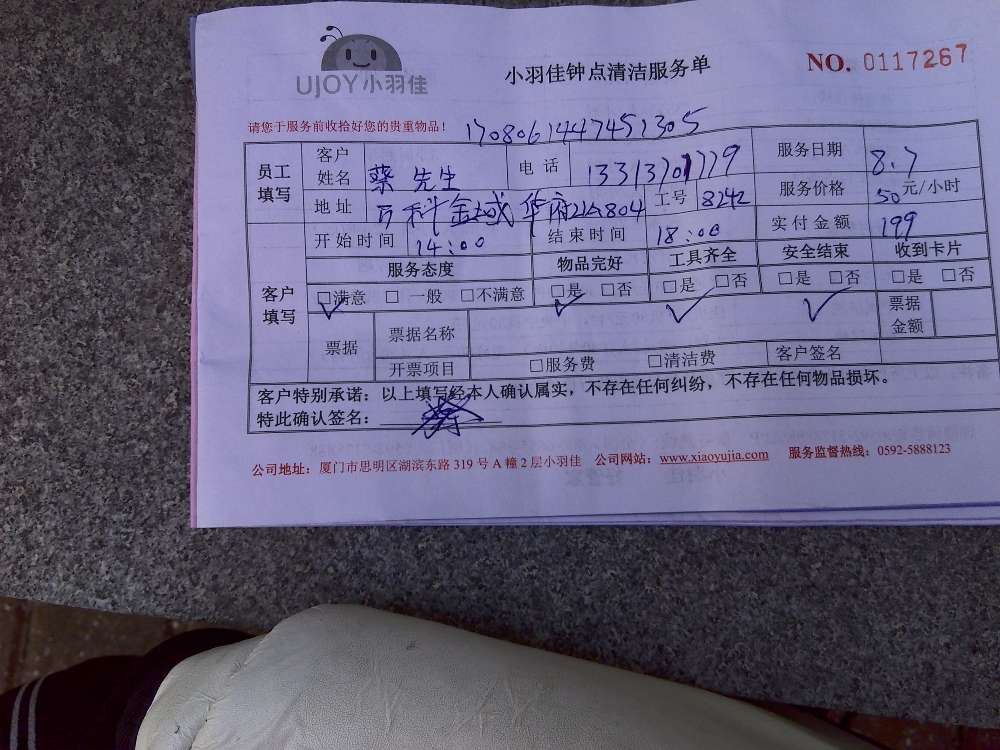 UJOY小羽佳
小羽佳钟点清洁服务单
NO. 0117267
请您于服务前收拾好您的贵重物品！
1708061447451305
员工填写 客户姓名 蔡先生 电话 服务日期 8.7
地址 万科金域华府 804 工号 8242 服务价格 50元/小时
开始时间 14:00 结束时间 18:00 实付金额 199
客户填写 服务态度 物品完好 工具齐全 安全结束 收到卡片
□满意 □ 一般 □不满意 □是 □否 □是 □否 □是 □否 □是 □否
票据 票据名称 票据金额
开票项目 □服务费 □清洁费 客户签名
客户特别承诺：以上填写经本人确认属实，不存在任何纠纷，不存在任何物品损坏。
特此确认签名：
公司地址：厦门市思明区湖滨东路 319 号 A 幢 2 层小羽佳 公司网站：www.xiaoyujia.com 服务监督热线：0592-5888123